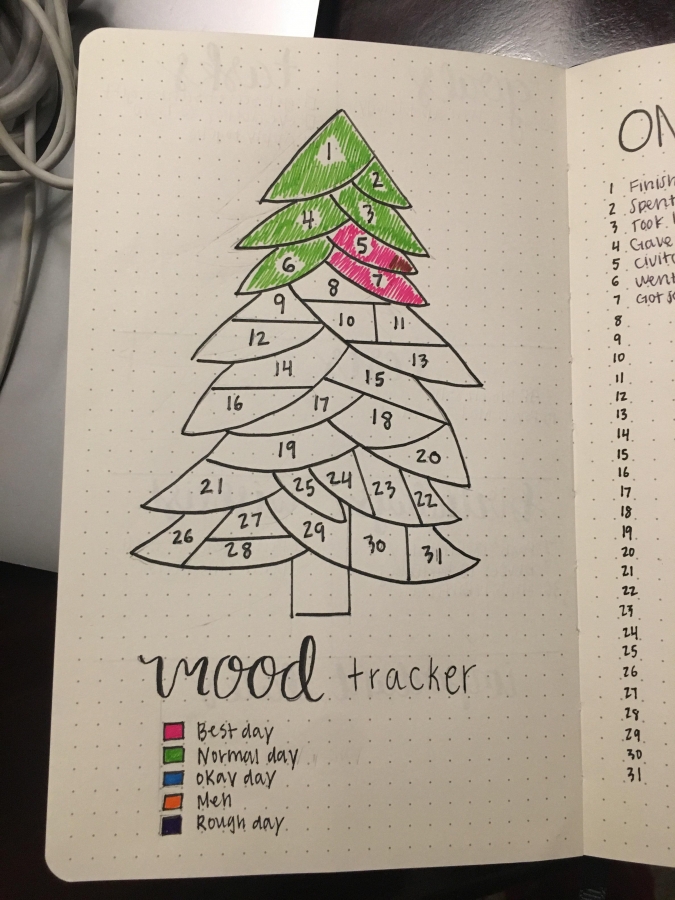 1
2
4 3
5
6
7
8
9
10 11
12
13
14
15
16 17
18
19
20
21 25 24 23 22
26 27
28
29 30 31
mood tracker
Best day
Normal day
okay day
Meh
Rough day
1 Finish
2 Spent
3 Took
4 Gave
5
6 went
7
8
9
10
11
12
13
14
15
16
17
18
19
20
21
22
23
24
25
26
27
28
29
30
31